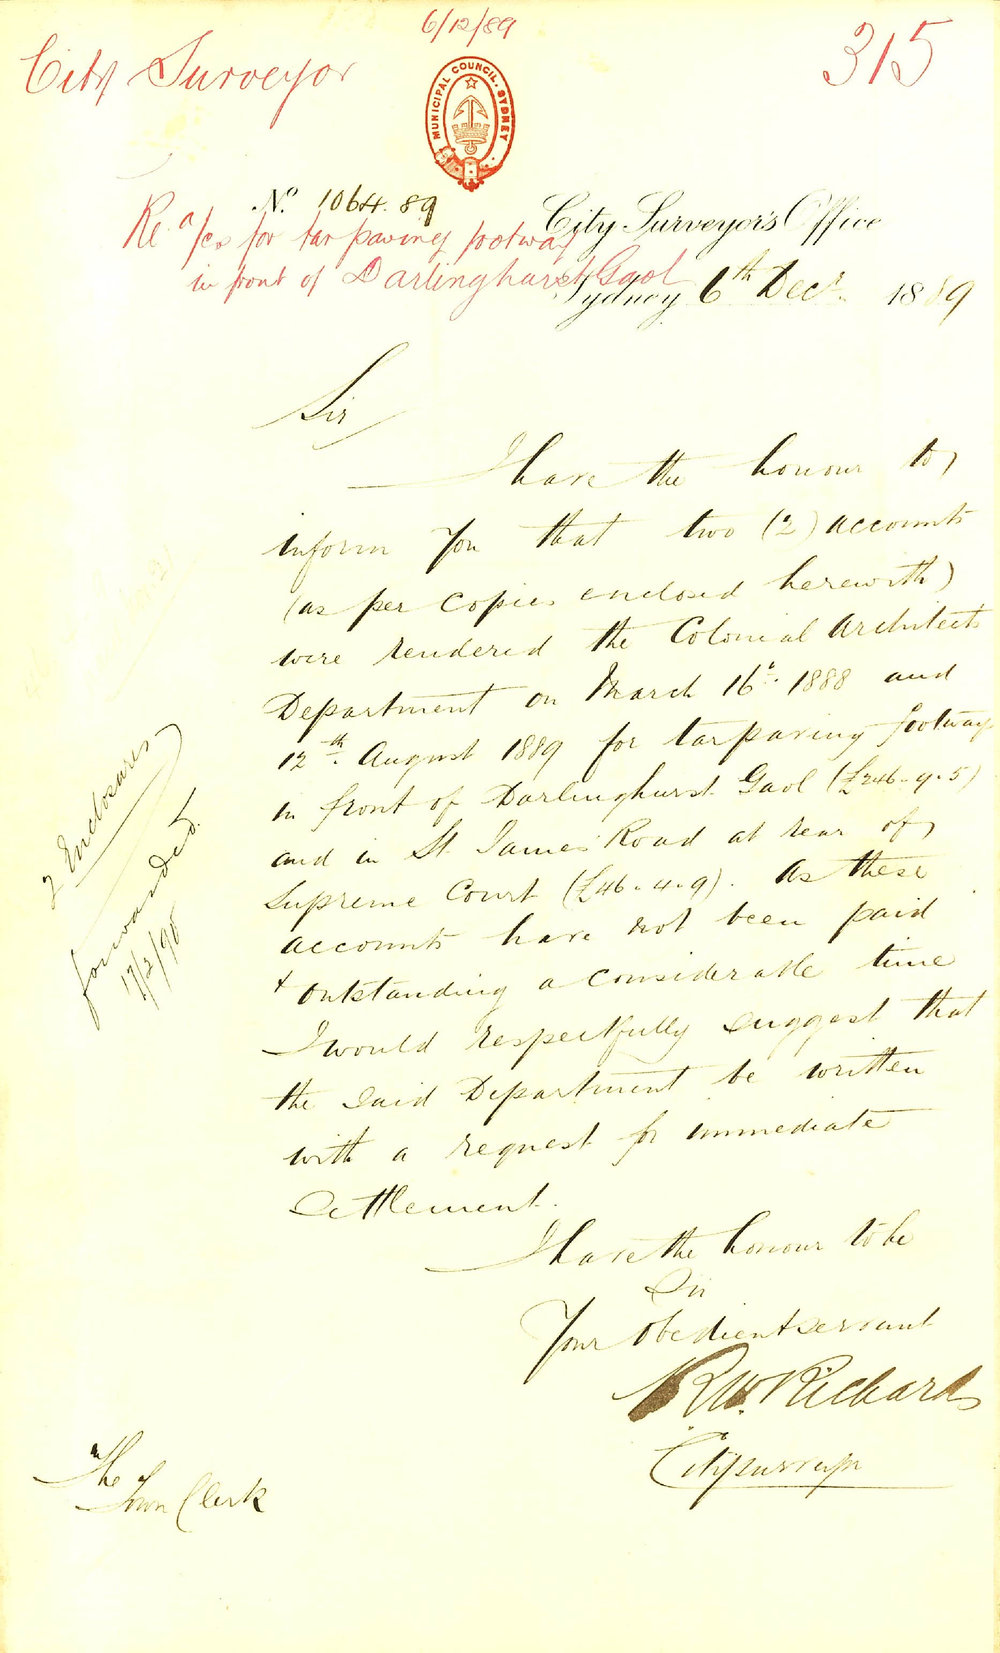 6/12/89
City Surveyor
315
MUNICIPAL COUNCIL. SYDNEY
No. 1064.89
City Surveyor's Office
Re a/cs for tar paving footway
in front of Darlinghurst Gaol
Sydney 6th Decr. 1889
Sir
I have the honour to
inform you that two (2) accounts
(as per copies enclosed herewith)
were rendered the Colonial Architects
Department on March 16th. 1888 and
12th. August 1889 for tarpaving footway
in front of Darlinghurst Gaol (£246-9-5)
and in St James Road at rear of
Supreme Court (£46-4-9). As these
accounts have not been paid
+ outstanding a considerable time
I would respectfully suggest that
the said Department be written
with a request for immediate
settlement.
I have the honour to be
Sir
Your obedient servant
R.W. Richards
City surveyor
2 Enclosures
forwarded.
17/2/90
The
Town Clerk